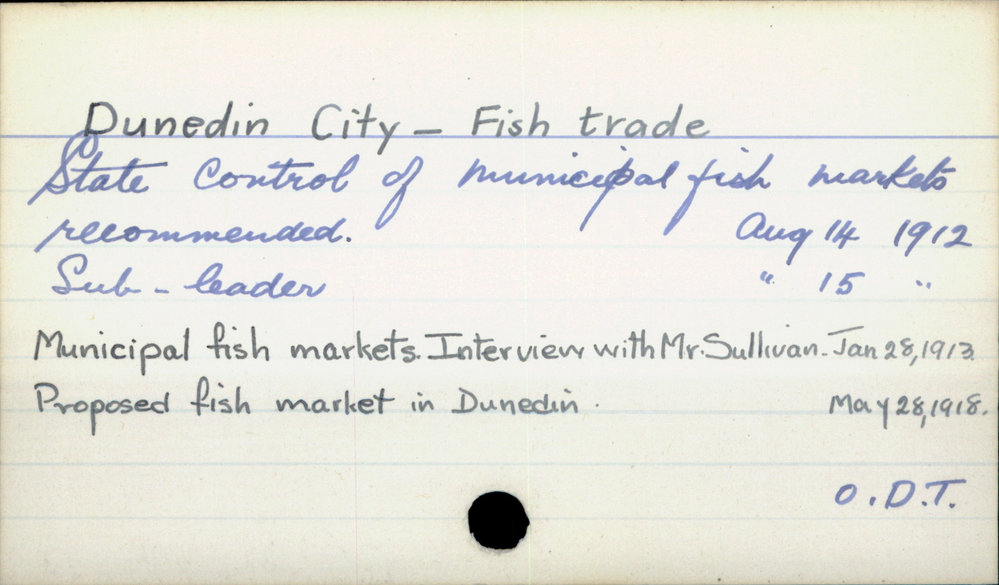 Dunedin City - Fish trade
State control of municipal fish markets
recommended. Aug 14 1912
Sub-leader " 15 "
Municipal fish markets. Interview with Mr. Sullivan - Jan 28, 1913
Proposed fish market in Dunedin. May 28, 1918.
O.D.T.